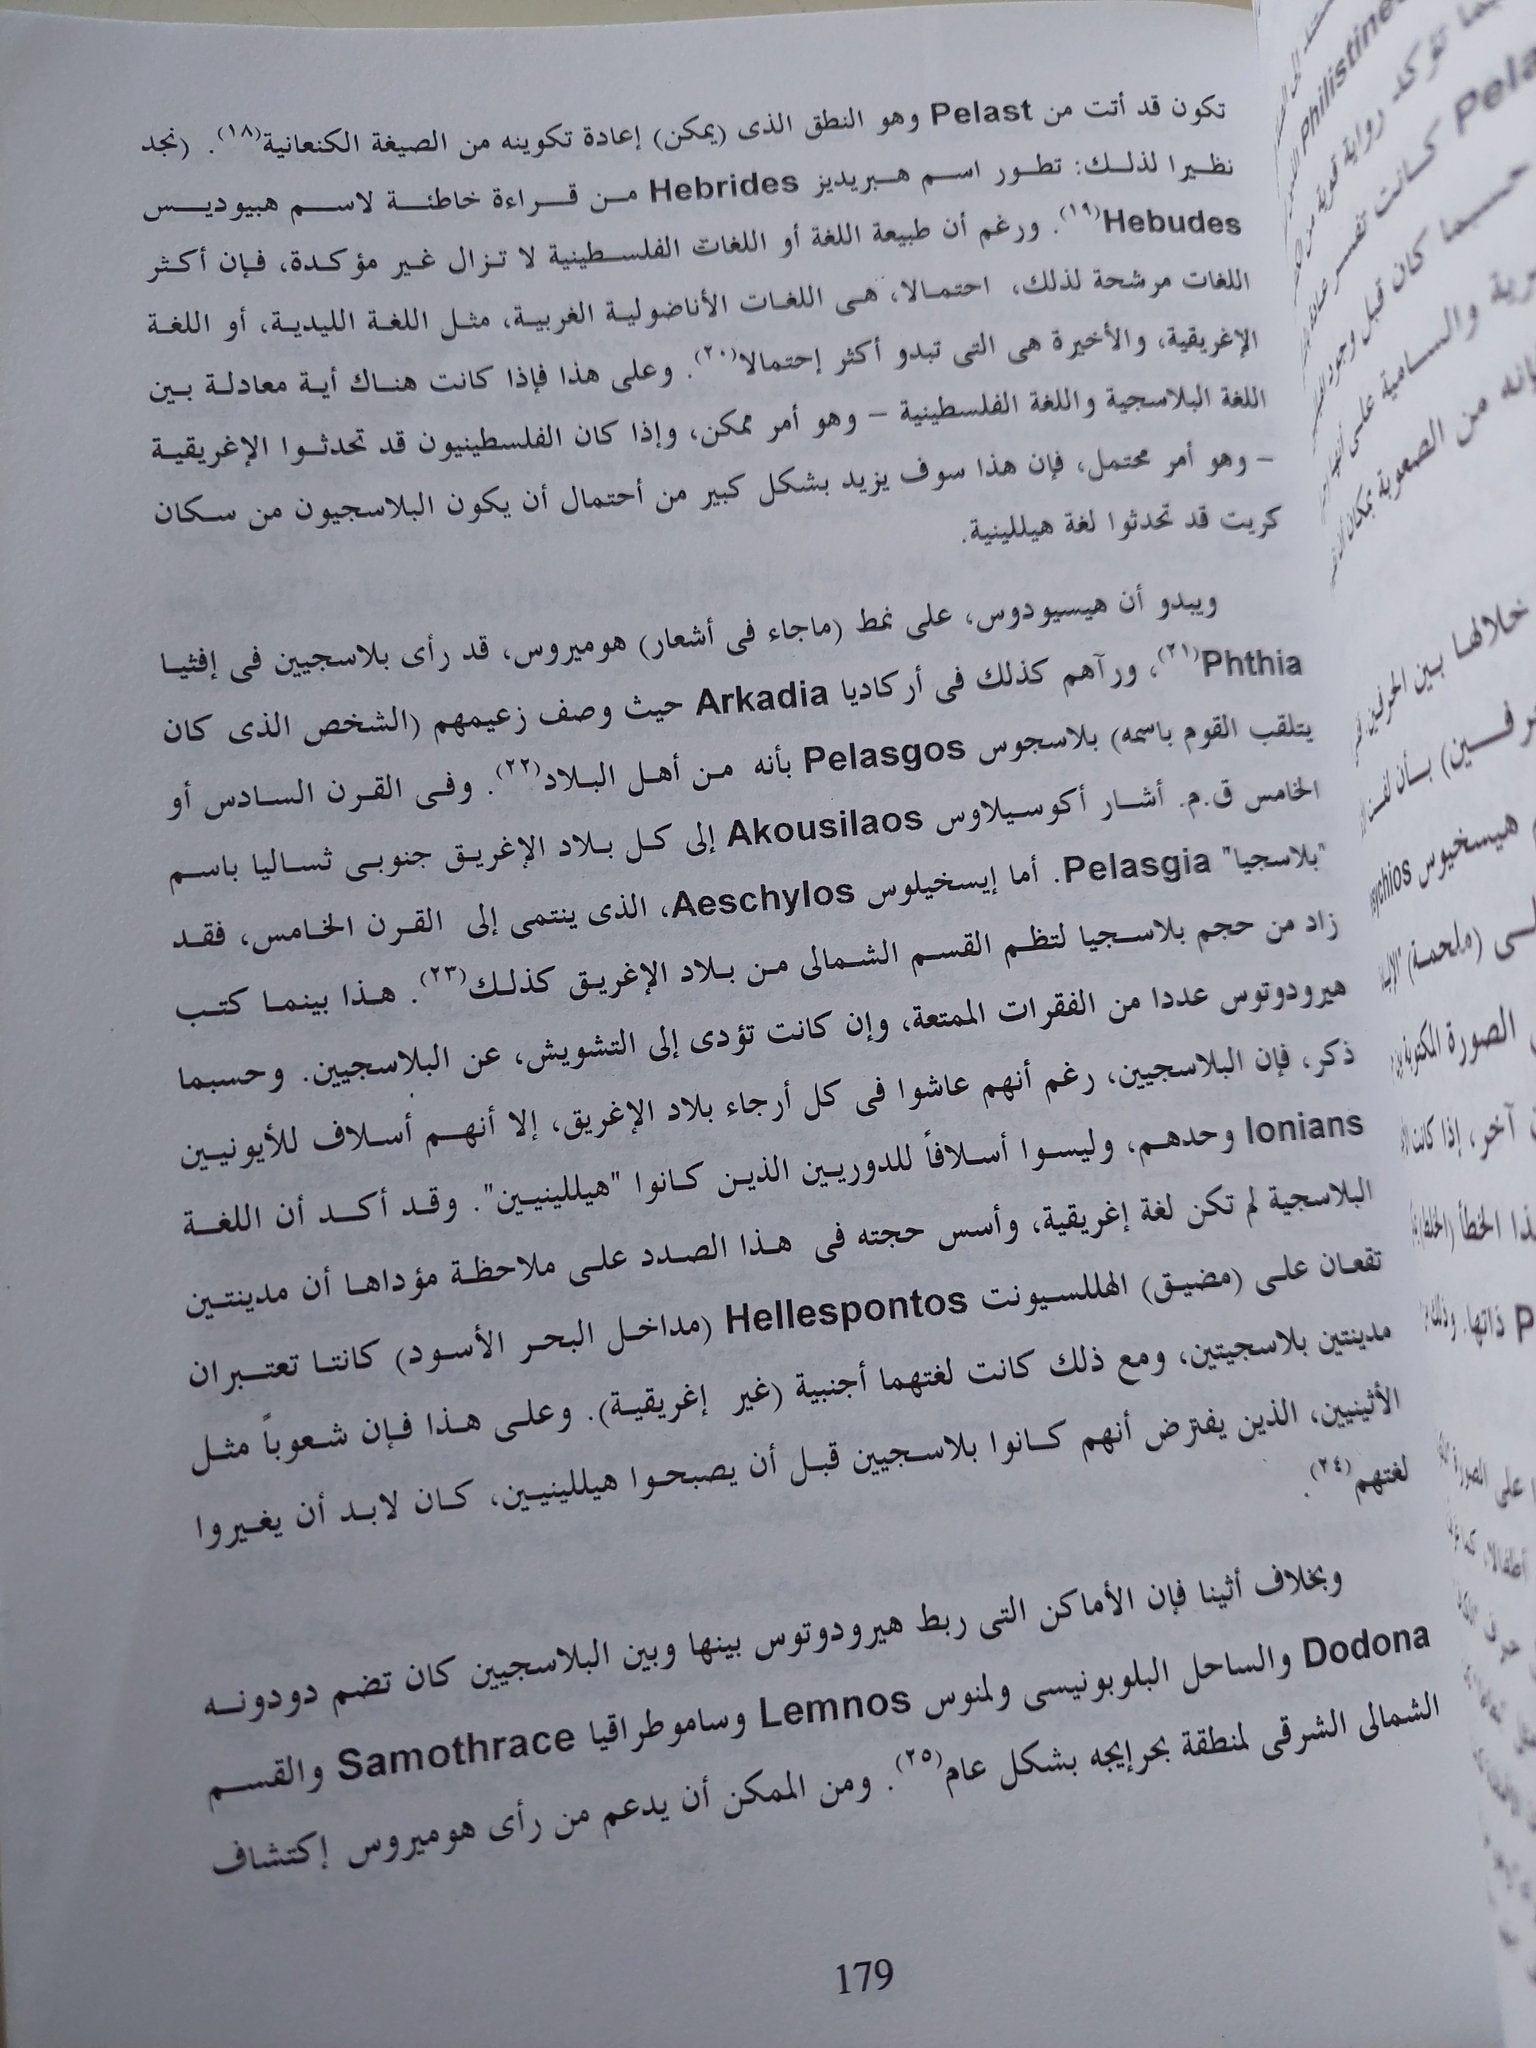 تكون قد أتت من Pelast وهو النطق الذى (يمكن) إعادة تكوينه من الصيغة الكنعانية(١٨). (نجد
نظيرا لذلك: تطور اسم هبريديز Hebrides من قراءة خاطئة لاسم هبيوديس
Hebudes(١٩). ورغم أن طبيعة اللغة أو اللغات الفلسطينية لا تزال غير مؤكدة، فإن أكثر
اللغات مرشحة لذلك، احتمالا، هى اللغات الأناضولية الغربية، مثل اللغة الليدية، أو اللغة
الإغريقية، والأخيرة هى التى تبدو أكثر إحتمالا(٢٠). وعلى هذا فإذا كانت هناك أية معادلة بين
اللغة البلاسجية واللغة الفلسطينية – وهو أمر ممكن، وإذا كان الفلسطينيون قد تحدثوا الإغريقية
– وهو أمر محتمل، فإن هذا سوف يزيد بشكل كبير من أحتمال أن يكون البلاسجيون من سكان
كريت قد تحدثوا لغة هيللينية.
ويبدو أن هيسيودوس، على نمط (ماجاء فى أشعار) هوميروس، قد رأى بلاسجيين فى إفثيا
Phthia(٢١)، ورآهم كذلك فى أركاديا Arkadia حيث وصف زعيمهم (الشخص الذى كان
يتلقب القوم باسمه) بلاسجوس Pelasgos بأنه من أهل البلاد(٢٢). وفى القرن السادس أو
الخامس ق.م. أشار أكوسيلاوس Akousilaos إلى كل بلاد الإغريق جنوبى ثساليا باسم
"بلاسجيا" Pelasgia. أما إيسخيلوس Aeschylos، الذى ينتمى إلى القرن الخامس، فقد
زاد من حجم بلاسجيا لتظم القسم الشمالى من بلاد الإغريق كذلك(٢٣). هذا بينما كتب
هيرودوتوس عددا من الفقرات الممتعة، وإن كانت تؤدى إلى التشويش، عن البلاسجيين. وحسبما
ذكر، فإن البلاسجيين، رغم أنهم عاشوا فى كل أرجاء بلاد الإغريق، إلا أنهم أسلاف للأيونيين
Ionians وحدهم، وليسوا أسلافاً للدوريين الذين كانوا "هيللينيين". وقد أكد أن اللغة
البلاسجية لم تكن لغة إغريقية، وأسس حجته فى هذا الصدد على ملاحظة مؤداها أن مدينتين
تقعان على (مضيق) الهللسيونت Hellespontos (مداخل البحر الأسود) كانتا تعتبران
مدينتين بلاسجيتين، ومع ذلك كانت لغتهما أجنبية (غير إغريقية). وعلى هذا فإن شعوباً مثل
الأثينيين، الذين يفترض أنهم كانوا بلاسجيين قبل أن يصبحوا هيللينيين، كان لابد أن يغيروا
لغتهم(٢٤).
وبخلاف أثينا فإن الأماكن التى ربط هيرودوتوس بينها وبين البلاسجيين كان تضم دودونه
Dodona والساحل البلوبونيسى ولمنوس Lemnos وساموطراقيا Samothrace والقسم
الشمالى الشرقى لمنطقة بحرإيجه بشكل عام(٢٥). ومن الممكن أن يدعم من رأى هوميروس إكتشاف
179